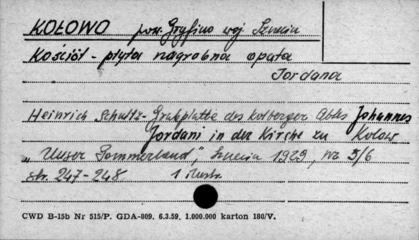 KOŁOWO pow. Gryfino woj Szczecin
Kościół - płyta nagrobna opata
Jordana
Heinrich Schultz - Grabplatte des kolberger Abtes Johannes
Jordani in der Kirche zu Kolow
"Unser Pommerland", Szczecin 1929, nr 5/6
str. 247-248 1 ilustr.
CWD B-15b Nr 515/P. GDA-809. 6.3.59. 1.000.000 karton 180/V.